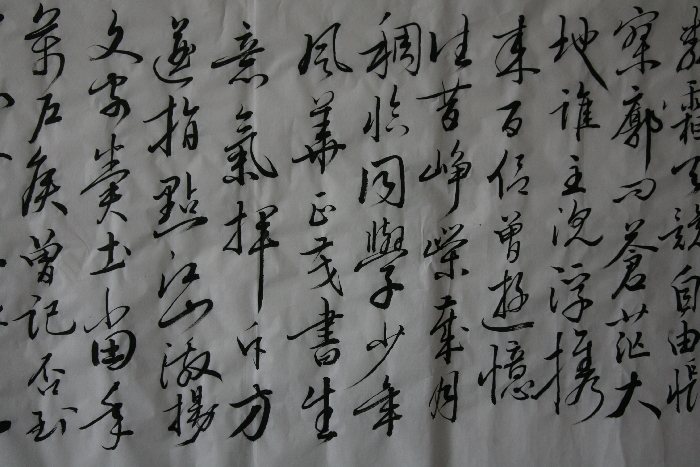 類霜天競自由悵
寥廓問蒼茫大
地誰主沉浮攜
來百侶曾遊憶
往昔崢嶸歲月
稠恰同學少年
風華正茂書生
意氣揮斥方
遒指點江山激揚
文字糞土當年
萬戶侯曾記否到